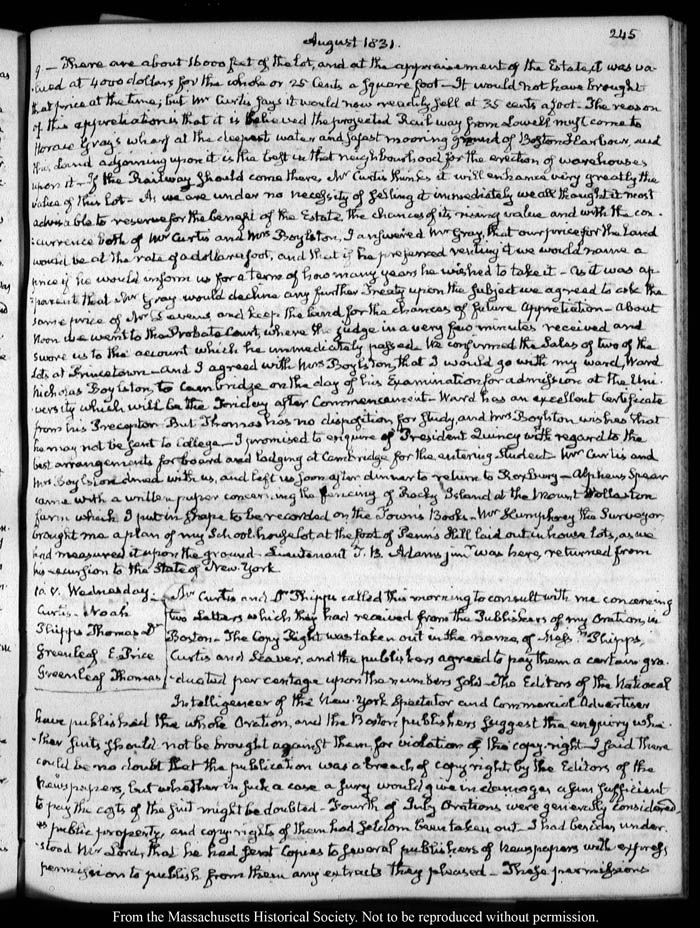 245
August 1831.
9 — There are about 16000 feet of the Lot, and at the appraisement of the Estate, it was va-
lued at 4000 dollars for the whole or 25 Cents a square foot — It would not have brought
that price at the time; but Mr Curtis says it would now readily sell at 35 cents a foot — The reason
of this appretiation is that it is believed the projected Rail way from Lowell must come to
Horace Gray's wharf at the deepest water and safest mooring ground of Boston Harbour, and
this Land adjoining upon it is the best in that neighbourhood for the erection of warehouses
upon it — If the Railway should come there, Mr Curtis thinks it will enhance very greatly the
value of this Lot — As we are under no necessity of selling it immediately we all thought it most
adviseable to reserve for the benefit of the Estate the chances of its rising value and with the con-
:currence both of Mr Curtis and Mrs Boylston, I answered Mr Gray, that our price for the Land
would be at the rate of a dollar a foot, and that if he preferred renting it we would name a
price if he would inform us for a term of how many years he wished to take it — As it was ap-
:parent that Mr Gray would decline any further Treaty upon the subject we agreed to ask the
same price of Mr Stevens and keep the Land for the chances of future Appretiation — About
Noon we went to the Probate Court, where the Judge in a very few minutes received and
swore us to the account which he immediately passed He confirmed the Sales of two of the
Lots at Princetown — And I agreed with Mrs Boylston, that I would go with my ward, Ward
Nicholas Boylston, to Cambridge on the day of his Examination for admission at the Uni-
versity which will be the Friday after Commencement — Ward has an excellent Certificate
from his Preceptor — But Thomas has no disposition for study, and Mrs Boylston wishes that
he may not be sent to College — I promised to enquire of President Quincy with regard to the
best arrangements for board and lodging at Cambridge for the entering Student — Mr Curtis and
Mrs Boylston dined with us, and left us soon after dinner to return to Roxbury — Alpheus Spear
came with a written paper concerning the fencing of Rocky Island at the Mount Wollaston
farm which I put in shape to be recorded on the Town's Books — Mr Humphrey the Surveyor
brought me a plan of my School-house lot at the foot of Penn's Hill laid out in house Lots, as we
had measured it upon the ground — Lieutenant J. B. Adams junr was here, returned from
his excursion to the State of New-York
10. V. Wednesday
Curtis — Noah
Phipps Thomas Dr
Greenleaf E. Price
Greenleaf Thomas
Mr Curtis and Dr Phipps called this morning to consult with me concerning
two Letters which they had received from the Publishers of my Oration, in
Boston — The Copy Right was taken out in the name of Messrs Phipps,
Curtis and Seaver, and the publishers agreed to pay them a certain gra-
:duated per centage upon the numbers sold — The Editors of the National
Intelligencer of the New-York Spectator and Commercial Advertiser
have published the whole Oration, and the Boston publishers suggest the enquiry whe-
:ther suits should not be brought against them for violation of the copy-right — I said there
could be no doubt that the publication was a breach of copy right, by the Editors of the
Newspapers, but whether in such a case a Jury would give in damages a sum sufficient
to pay the costs of the suit might be doubted — Fourth of July Orations were generally considered
as public property, and copy-rights of them had seldom been taken out I had besides under-
:stood Mr Lord, that he had sent Copies to several publishers of Newspapers with express
permission to publish from them any extracts they pleased — These permissions
From the Massachusetts Historical Society. Not to be reproduced without permission.